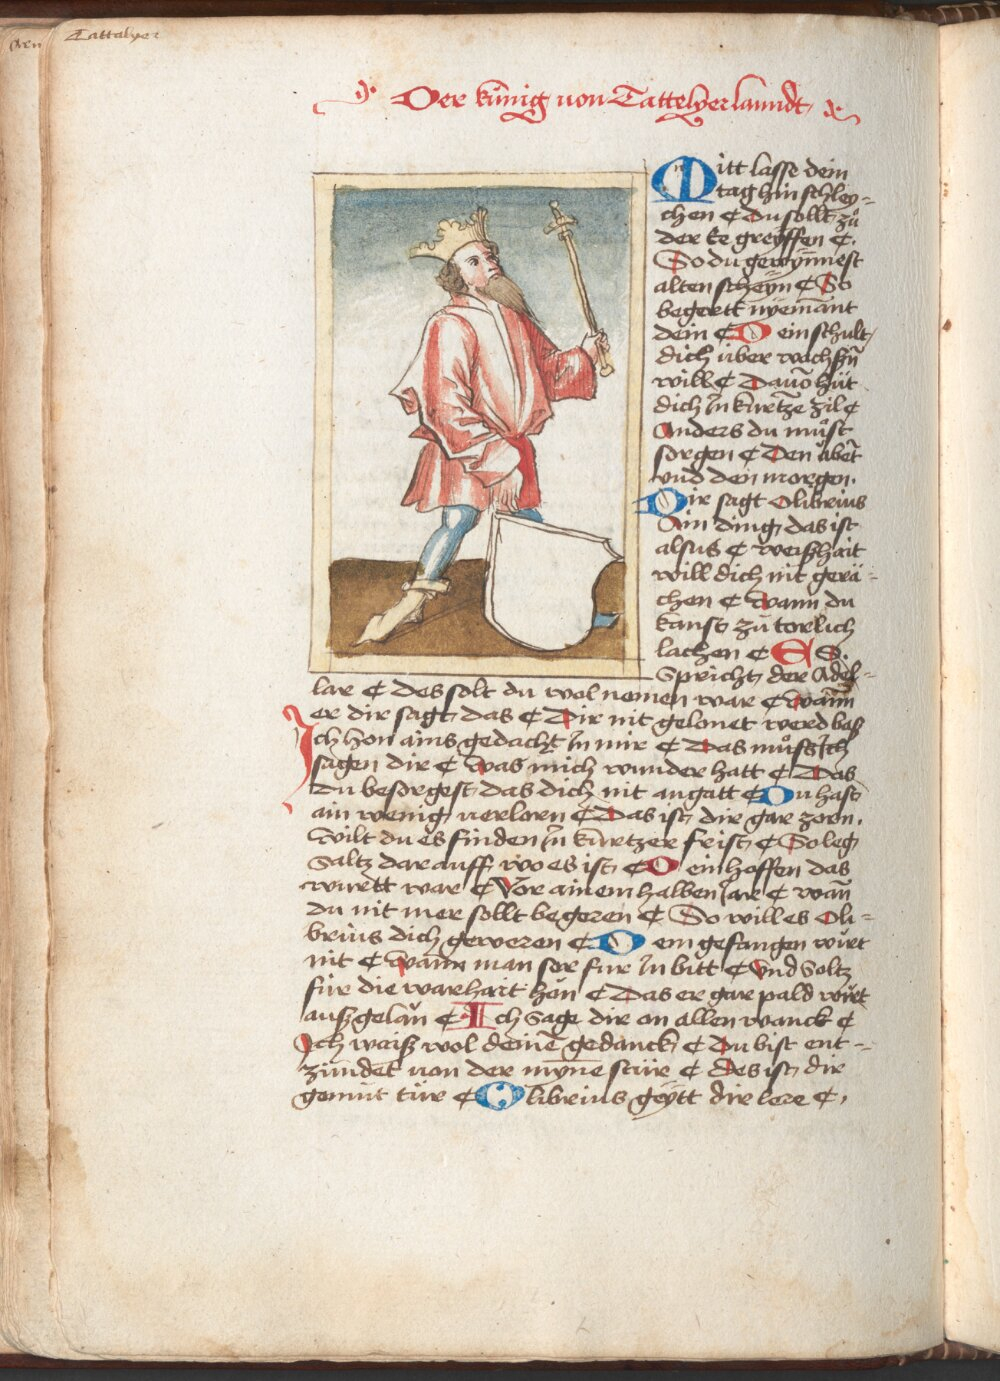 Tattalyer
Der künig von Tattelyerlanndt
Nitt lasse dein
tag hin schley-
chen ¢ Du sollt zů
der ke greyffen ¢.
So du gewynnest
alten scheyn ¢ So
begertt nyemant
dein ¢ Dein schult
dich über wachssn̄
will ¢ Dauō hüt
dich In kurtze zil ¢
Anders du můst
sorgen ¢ Den abēt
vnd den morgen.
Dir sagt Olibrius
Ain ding das ist
alsus ¢ weißhait
will dich nit gerä-
chen ¢ Wann du
kanst zů torlich
lachen ¢ ES.
Spricht der Adel-
lar ¢ Des solt du wol nemen war ¢ Wann
er dir sagt das ¢ Dir nit gelonet werd baß
Ich hon ains gedacht In mir ¢ Das můß Ich
sagen dir ¢ Was mich wunder hatt ¢ Das
Du besorgest das dich nit angatt ¢ Du hast
ain wenig verlorn ¢ Das ist dir gar zorn.
Wilt du es finden In kurtzer frist ¢ So leg
Saltz darauff wo es ist ¢ Dein hoffen das
wurtt war ¢ Vor ainem halben Jar ¢ wān
du nit mer sollt begeren ¢ So will es Oli-
brius dich geweren ¢ Dein gefangen wůrt
nit ¢ Wann man ser fur In bitt ¢ Vnd Soltz
für die warhait hōn ¢ Das er gar pald würt
außgelān ¢ Ich Sage dir on allen wanck ¢
Ich waiß wol deinē gedanck ¢ Du bist ent-
zündet von der myne stür ¢ Des ist dir
gemüt tür ¢ Olibrius geytt dir lere ¢.